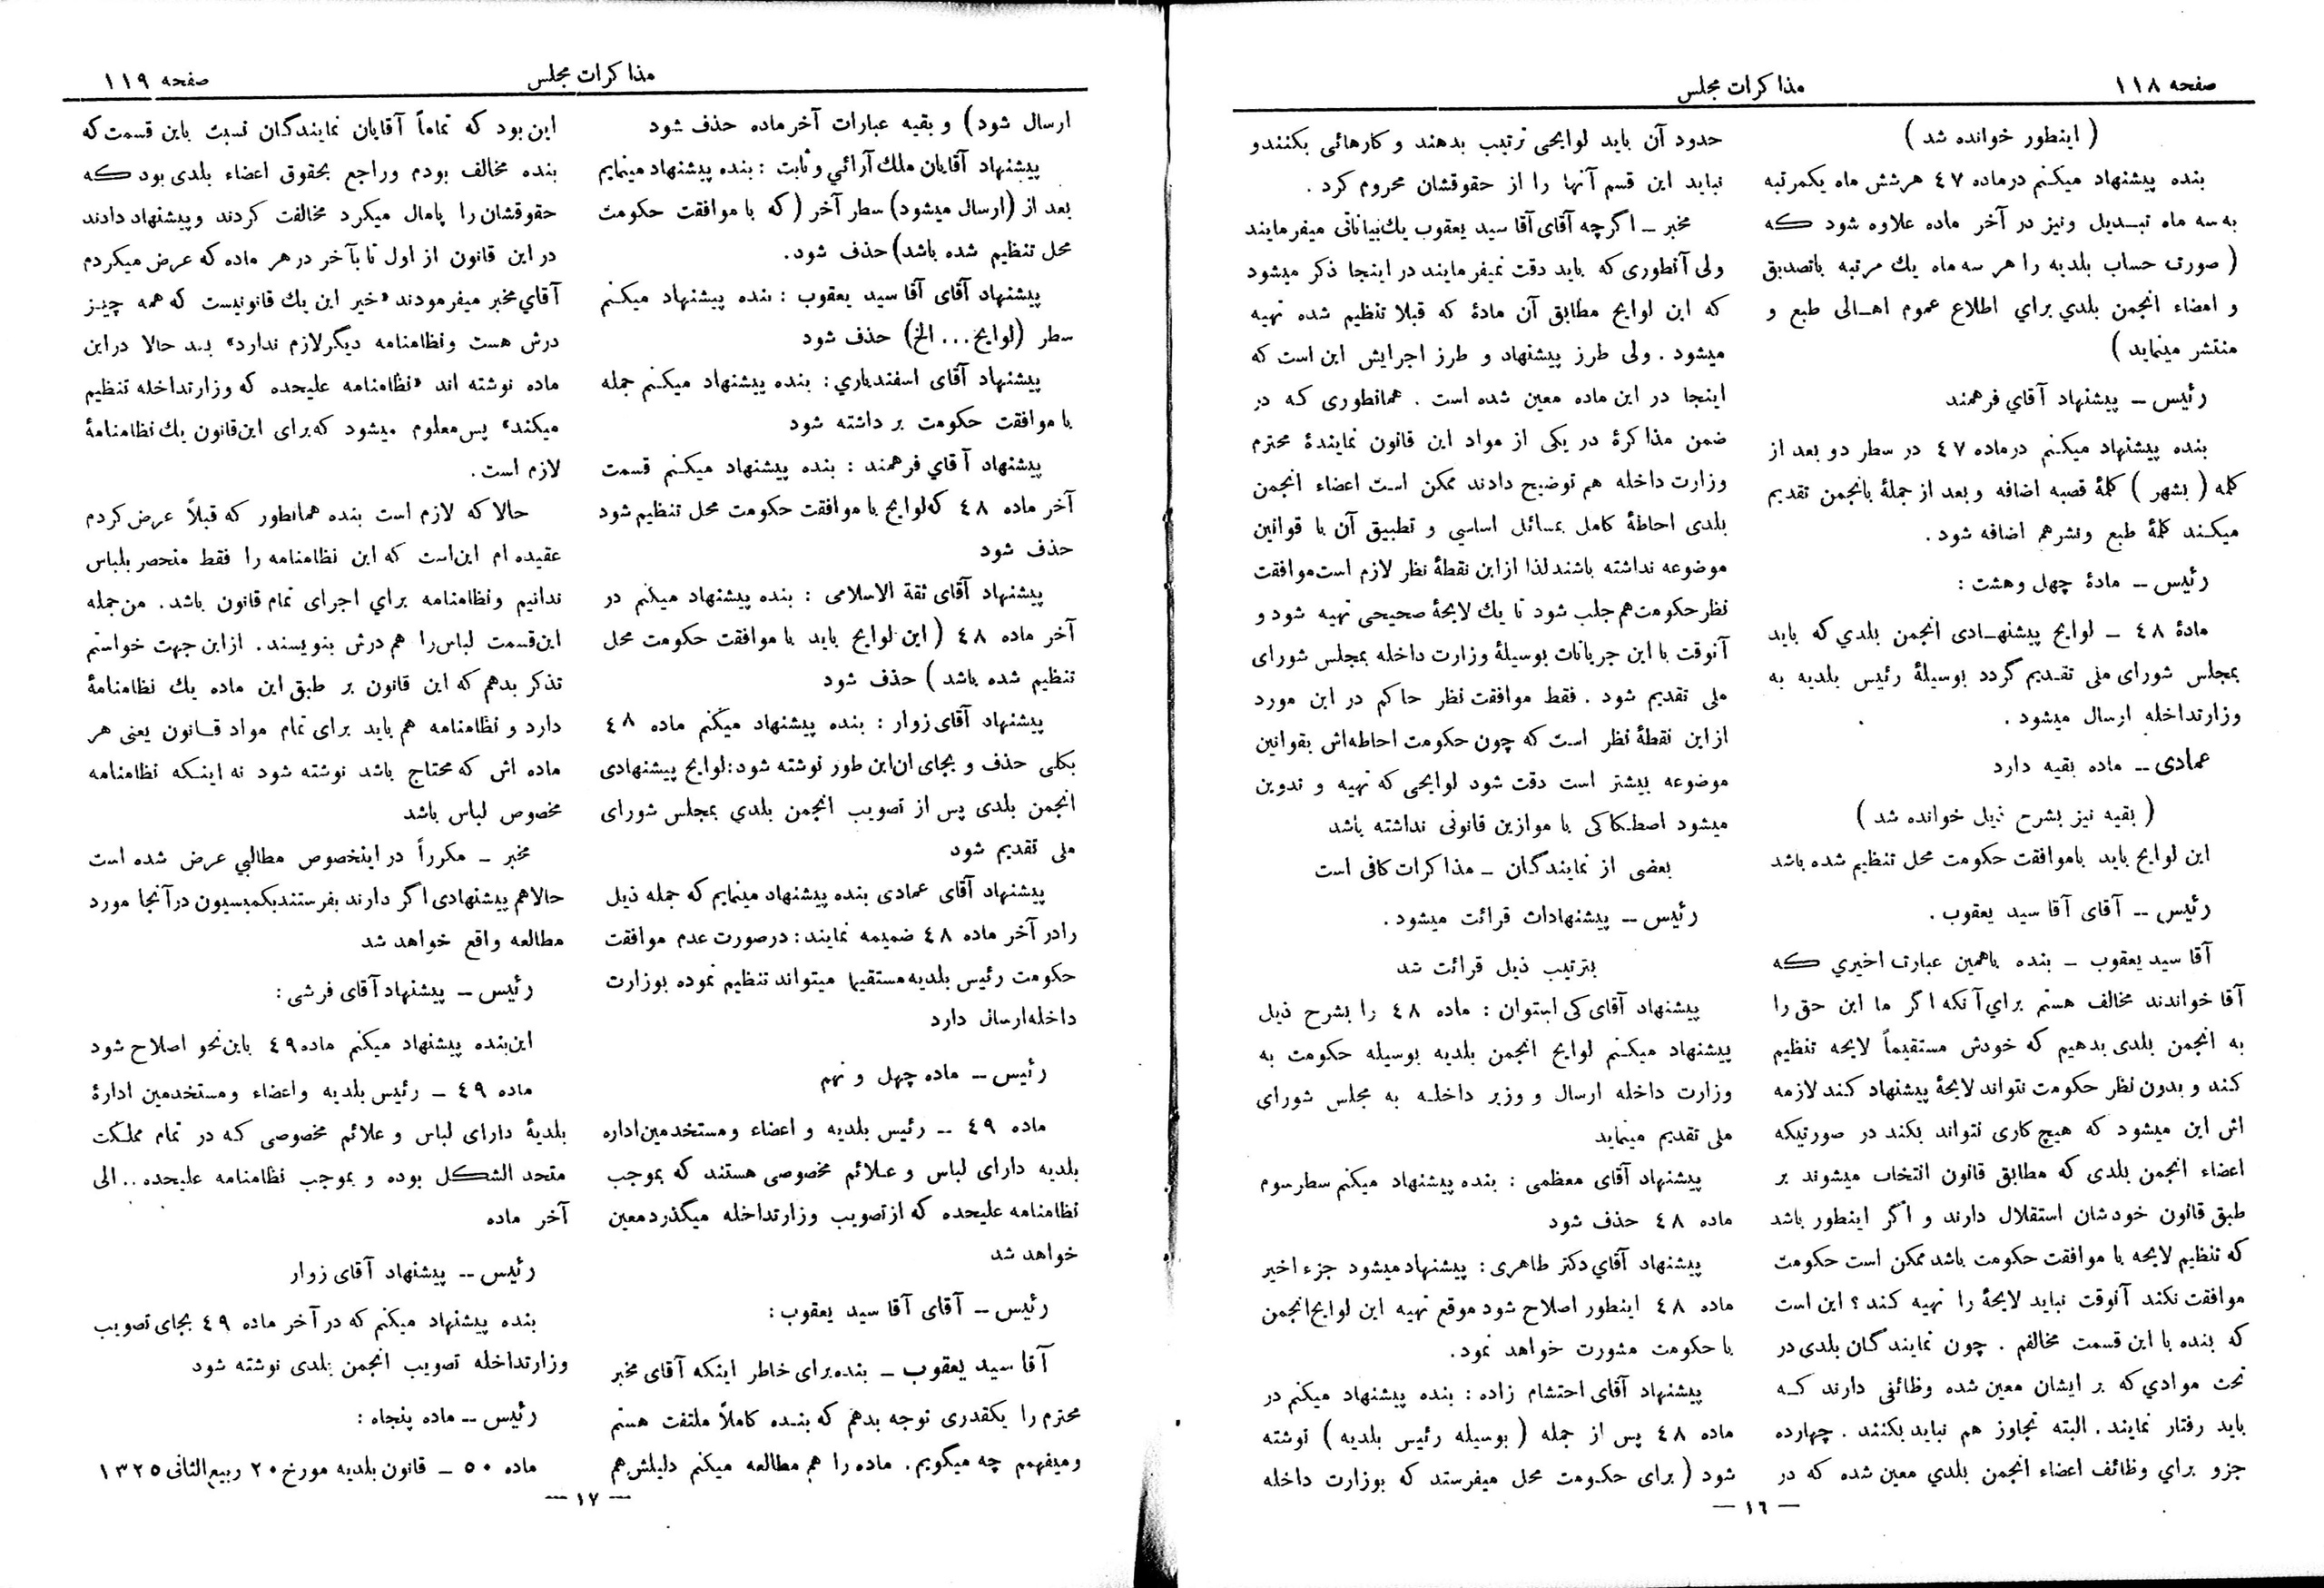 صفحه ۱۱۸
مذاکرات مجلس
( اینطور خوانده شد )
بنده پیشنهاد میکنم درماده ٤٧ هرشش ماه یکمرتبه
به سه ماه تبدیل ونیز در آخر ماده علاوه شود که
( صورت حساب بلدیه را هر سه ماه یك مرتبه باتصدیق
و امضاء انجمن بلدي براي اطلاع عموم اهالی طبع و
منتشر مینماید )
رئیس – پیشنهاد آقاي فرهمند
بنده پیشنهاد میکنم درماده ٤٧ در سطر دو بعد از
کلمه ( بشهر ) کلمهٔ قصبه اضافه و بعد از جملهٔ بانجمن تقدیم
میکنند کلمهٔ طبع ونشرهم اضافه شود .
رئیس – مادهٔ چهل وهشت :
مادهٔ ٤٨ – لوایح پیشنهادی انجمن بلدي که باید
بمجلس شورای ملی تقدیم گردد بوسیلهٔ رئیس بلدیه به
وزارتداخله ارسال میشود .
عمادی – ماده بقیه دارد
( بقیه نیز بشرح ذیل خوانده شد )
این لوایح باید باموافقت حکومت محل تنظیم شده باشد
رئیس – آقای آقا سید یعقوب .
آقا سید یعقوب – بنده باهمین عبارت اخیري که
آقا خواندند مخالف هستم براي آنکه اگر ما این حق را
به انجمن بلدی بدهیم که خودش مستقیماً لایحه تنظیم
کند و بدون نظر حکومت نتواند لایحهٔ پیشنهاد کند لازمه
اش این میشود که هیچ کاری نتواند بکند در صورتیکه
اعضاء انجمن بلدی که مطابق قانون انتخاب میشوند بر
طبق قانون خودشان استقلال دارند و اگر اینطور باشد
که تنظیم لایحه با موافقت حکومت باشد ممکن است حکومت
موافقت نکند آنوقت نباید لایحهٔ را تهیه کند ؟ این است
که بنده با این قسمت مخالفم . چون نمایندگان بلدی در
تحت موادي که بر ایشان معین شده وظائفی دارند که
باید رفتار نمایند . البته تجاوز هم نباید بکنند . چهارده
جزو براي وظائف اعضاء انجمن بلدي معین شده که در
حدود آن باید لوایحی ترتیب بدهند و کارهائی بکنندو
نباید این قسم آنها را از حقوقشان محروم کرد .
مخبر – اگرچه آقای آقا سید یعقوب یك بیاناتی میفرمایند
ولی آنطوری که باید دقت نمیفرمایند در اینجا ذکر میشود
که این لوایح مطابق آن مادهٔ که قبلا تنظیم شده تهیه
میشود . ولی طرز پیشنهاد و طرز اجرایش این است که
اینجا در این ماده معین شده است . همانطوری که در
ضمن مذاکرهٔ در یکی از مواد این قانون نمایندهٔ محترم
وزارت داخله هم توضیح دادند ممکن است اعضاء انجمن
بلدی احاطهٔ کامل بمسائل اساسي و تطبیق آن با قوانین
موضوعه نداشته باشند لذا ازاین نقطهٔ نظر لازم است موافقت
نظر حکومت هم جلب شود تا یك لایحهٔ صحیحی تهیه شود و
آنوقت با این جریانات بوسیلهٔ وزارت داخله بمجلس شورای
ملی تقدیم شود . فقط موافقت نظر حاکم در این مورد
از این نقطهٔ نظر است که چون حکومت احاطه‌اش بقوانین
موضوعه بیشتر است دقت شود لوایحی که تهیه و تدوین
میشود اصطکاکی با موازین قانونی نداشته باشد
بعضی از نمایندگان – مذاکرات کافی است
رئیس – پیشنهادات قرائت میشود .
بترتیب ذیل قرائت شد
پیشنهاد آقای کی استوان : ماده ٤٨ را بشرح ذیل
پیشنهاد میکنم لوایح انجمن بلدیه بوسیله حکومت به
وزارت داخله ارسال و وزیر داخله به مجلس شورای
ملی تقدیم مینماید
پیشنهاد آقای معظمی : بنده پیشنهاد میکنم سطر سوم
ماده ٤٨ حذف شود
پیشنهاد آقاي دکتر طاهری : پیشنهاد میشود جزء اخیر
ماده ٤٨ اینطور اصلاح شود موقع تهیه این لوایح انجمن
با حکومت مشورت خواهد نمود.
پیشنهاد آقای احتشام زاده : بنده پیشنهاد میکنم در
ماده ٤٨ پس از جمله ( بوسیله رئیس بلدیه ) نوشته
شود ( برای حکومت محل میفرستد که بوزارت داخله
— ١٦ —
مذاکرات مجلس
صفحه ۱۱۹
ارسال شود) و بقیه عبارات آخر ماده حذف شود
پیشنهاد آقایان ملك آرائي و ثابت : بنده پیشنهاد مینمایم
بعد از (ارسال میشود) سطر آخر ( که با موافقت حکومت
محل تنظیم شده باشد) حذف شود.
پیشنهاد آقای آقا سید یعقوب : بنده پیشنهاد میکنم
سطر (لوایح ... الخ) حذف شود
پیشنهاد آقای اسفندیاري : بنده پیشنهاد میکنم جمله
با موافقت حکومت بر داشته شود
پیشنهاد آقاي فرهمند : بنده پیشنهاد میکنم قسمت
آخر ماده ٤٨ که لوایح با موافقت حکومت محل تنظیم شود
حذف شود
پیشنهاد آقای ثقة الاسلامی : بنده پیشنهاد میکنم در
آخر ماده ٤٨ ( این لوایح باید با موافقت حکومت محل
تنظیم شده باشد ) حذف شود
پیشنهاد آقای زوار : بنده پیشنهاد میکنم ماده ٤٨
بکلی حذف و بجای ان این طور نوشته شود: لوایح پیشنهادی
انجمن بلدی پس از تصویب انجمن بلدي بمجلس شورای
ملی تقدیم شود
پیشنهاد آقای عمادی بنده پیشنهاد مینمایم که جمله ذیل
رادر آخر ماده ٤٨ ضمیمه نمایند : درصورت عدم موافقت
حکومت رئیس بلدیه مستقیما میتواند تنظیم نموده بوزارت
داخله ارسال دارد
رئیس – ماده چهل و نهم
ماده ٤٩ – رئیس بلدیه و اعضاء ومستخدمین اداره
بلدیه دارای لباس و علائم مخصوصی هستند که بموجب
نظامنامه علیحده که از تصویب وزارتداخله میگذرد معین
خواهد شد
رئیس – آقای آقا سید یعقوب :
آقا سید یعقوب – بنده برای خاطر اینکه آقای مخبر
محترم را یکقدری توجه بدهم که بنده کاملاً ملتفت هستم
ومیفهمم چه میگویم. ماده را هم مطالعه میکنم دلیلش هم
این بود که تماماً آقایان نمایندگان نسبت باین قسمت که
بنده مخالف بودم وراجع بحقوق اعضاء بلدی بود که
حقوقشان را پامال میکرد مخالفت کردند وپیشنهاد دادند
در این قانون از اول تا بآخر در هر ماده که عرض میکردم
آقاي مخبر میفرمودند «خیر این یك قانونیست که همه چیز
درش هست ونظامنامه دیگر لازم ندارد» بعد حالا دراین
ماده نوشته اند «نظامنامه علیحده که وزارتداخله تنظیم
میکند» پس معلوم میشود که برای این قانون یك نظامنامهٔ
لازم است .
حالا که لازم است بنده همانطور که قبلاً عرض کردم
عقیده ام این است که این نظامنامه را فقط منحصر بلباس
ندانیم ونظامنامه براي اجرای تمام قانون باشد. من جمله
این قسمت لباس را هم درش بنویسند. ازاین جهت خواستم
تذکر بدهم که این قانون بر طبق این ماده یك نظامنامهٔ
دارد و نظامنامه هم باید برای تمام مواد قانون یعنی هر
ماده اش که محتاج باشد نوشته شود نه اینکه نظامنامه
مخصوص لباس باشد
مخبر – مکرراً در اینخصوص مطالبي عرض شده است
حالاهم پیشنهادی اگر دارند بفرستند بکمیسیون درآنجا مورد
مطالعه واقع خواهد شد
رئیس – پیشنهاد آقای فرشی :
این بنده پیشنهاد میکنم ماده ٤٩ باین نحو اصلاح شود
ماده ٤٩ – رئیس بلدیه واعضاء ومستخدمین ادارهٔ
بلدیهٔ دارای لباس و علائم مخصوصی که در تمام مملکت
متحد الشکل بوده و بموجب نظامنامه علیحده .. الی
آخر ماده
رئیس – پیشنهاد آقای زوار
بنده پیشنهاد میکنم که در آخر ماده ٤٩ بجای تصویب
وزارتداخله تصویب انجمن بلدی نوشته شود
رئیس – ماده پنجاه :
ماده ٥٠ – قانون بلدیه مورخ ٢٠ ربیع الثانی ١٣٢٥
— ١٧ —